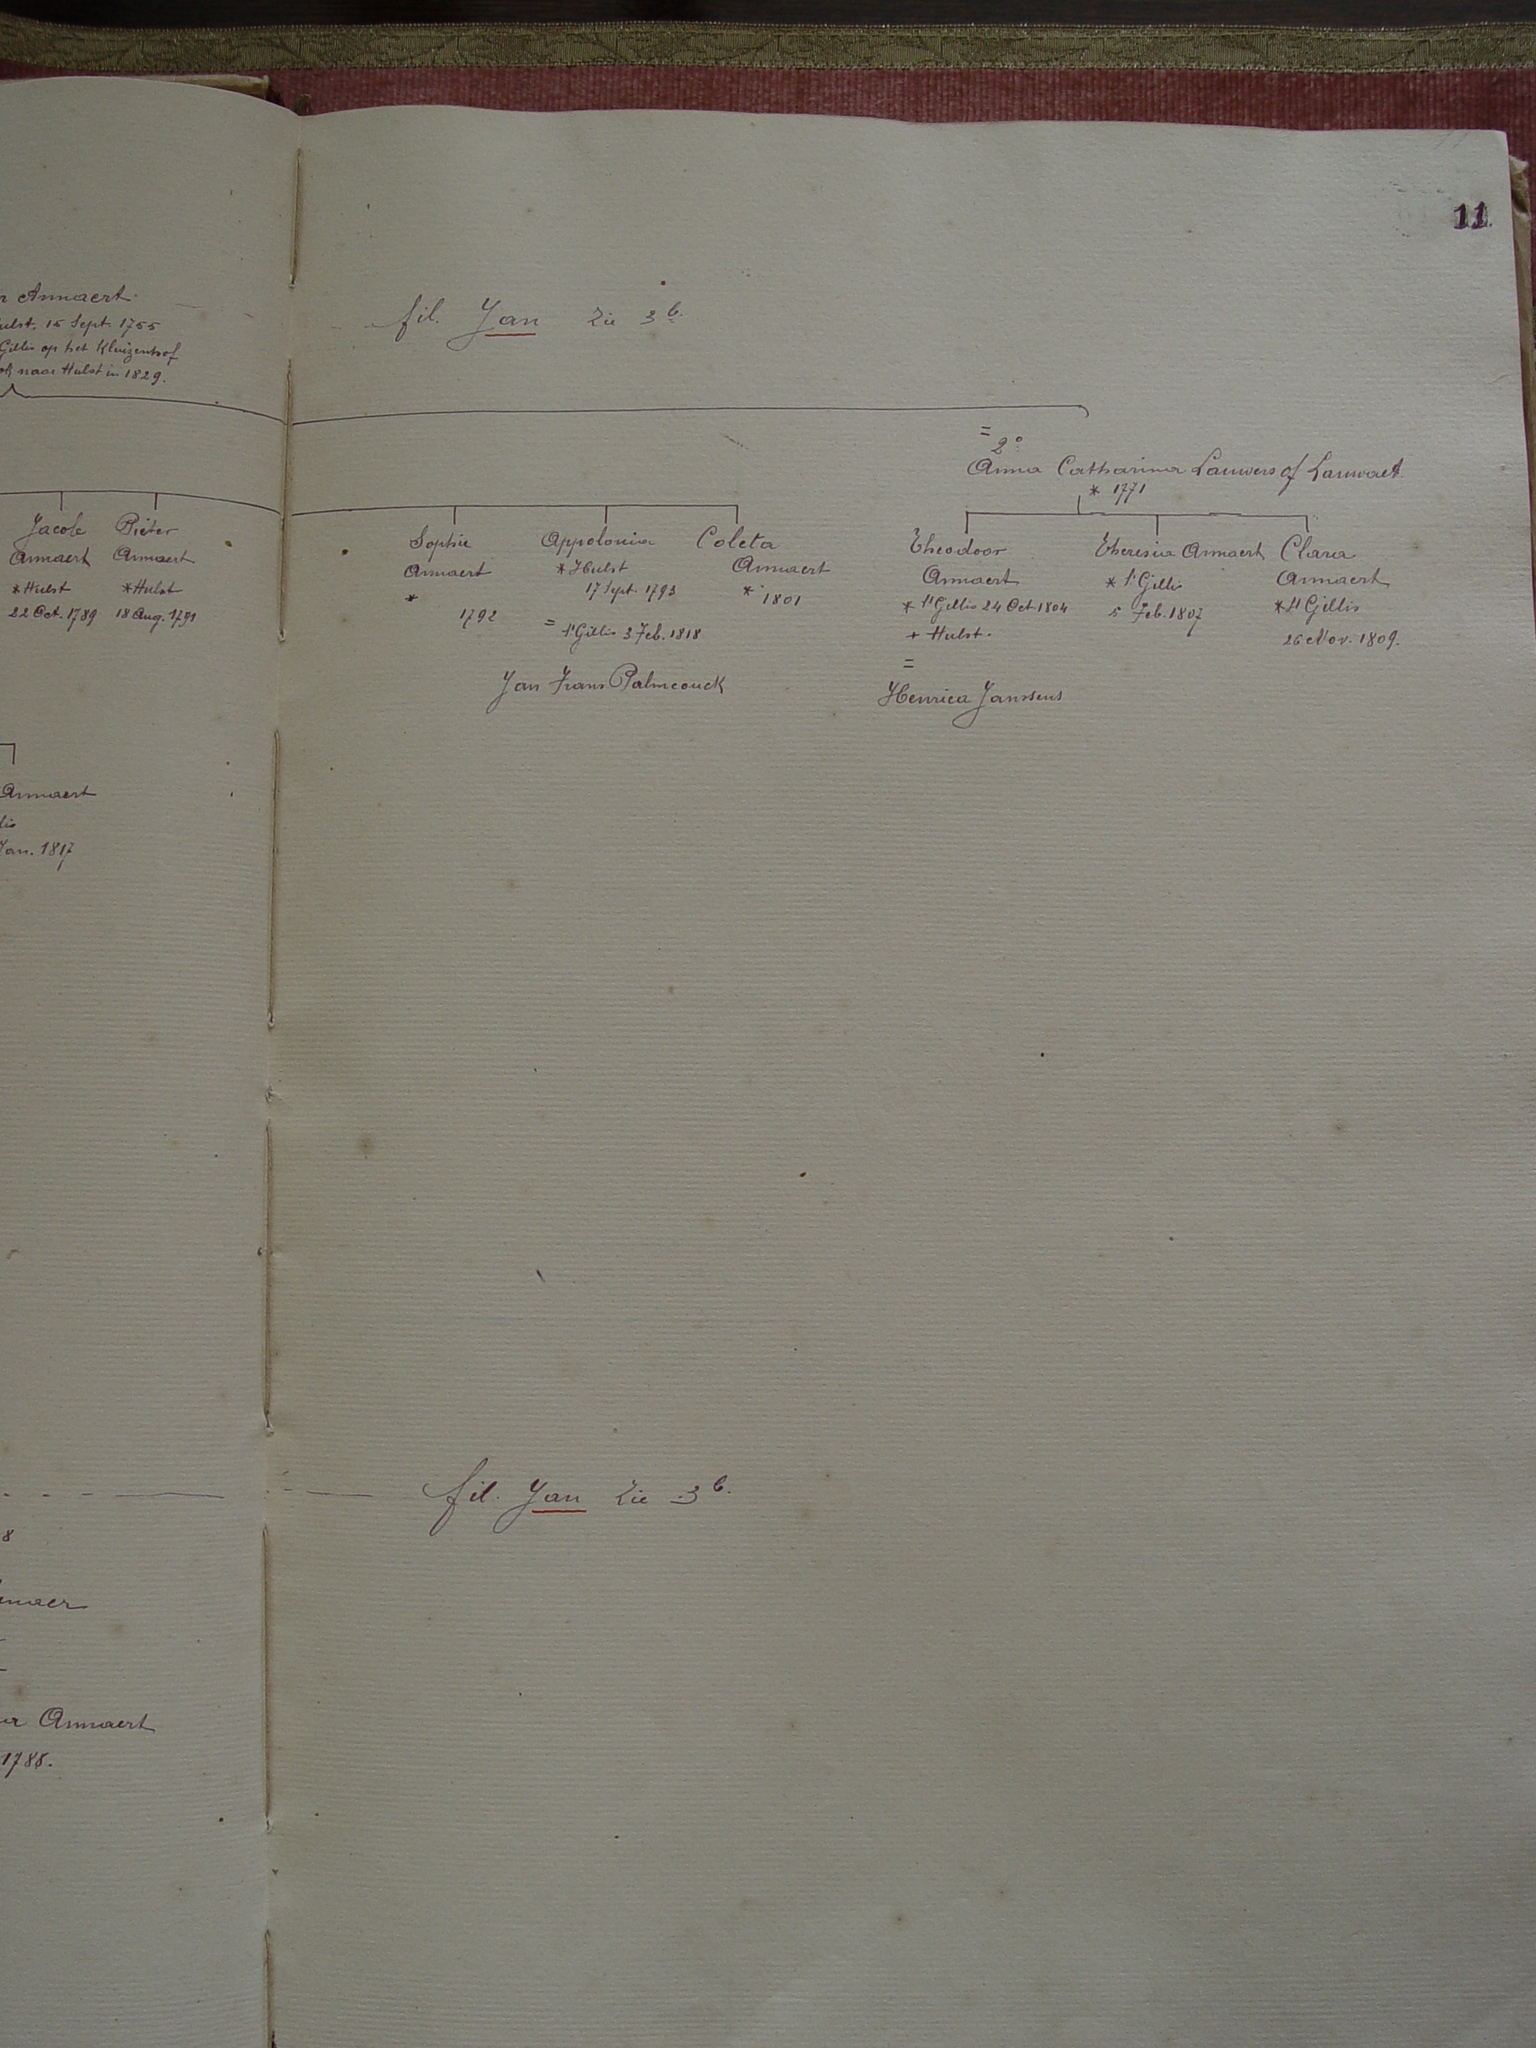 11.
Annaert.
Hulst, 15 Sept. 1755
Gillis op het Kluizenhof
ook naar Hulst in 1829.
fil. Jan Zie 3 b.
= 2°
Anna Catharina Lauwers of Lauwaet.
* 1771
Jacob
Annaert
* Hulst
22 Oct. 1789
Pieter
Annaert
* Hulst
18 Aug. 1791
Sophie
Annaert
*
1792
Appolonia
* Hulst
17 Sept. 1793
=
St Gillis 3 Feb. 1818
Jan Frans Palmconck
Coleta
Annaert
* 1801
Theodoor
Annaert
* St Gillis 24 Oct. 1804
+ Hulst.
=
Henrica Janssens
Theresia Annaert
* St Gillis
5 Feb. 1807
Clara
Annaert
* St Gillis
26 Nov. 1809.
Annaert
Jan. 1817
fil. Jan Zie 3 b.
8
Annaert